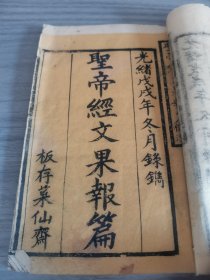 光緒戊戌年冬月錄鐫
聖帝經文果報篇
板存菓仙齋